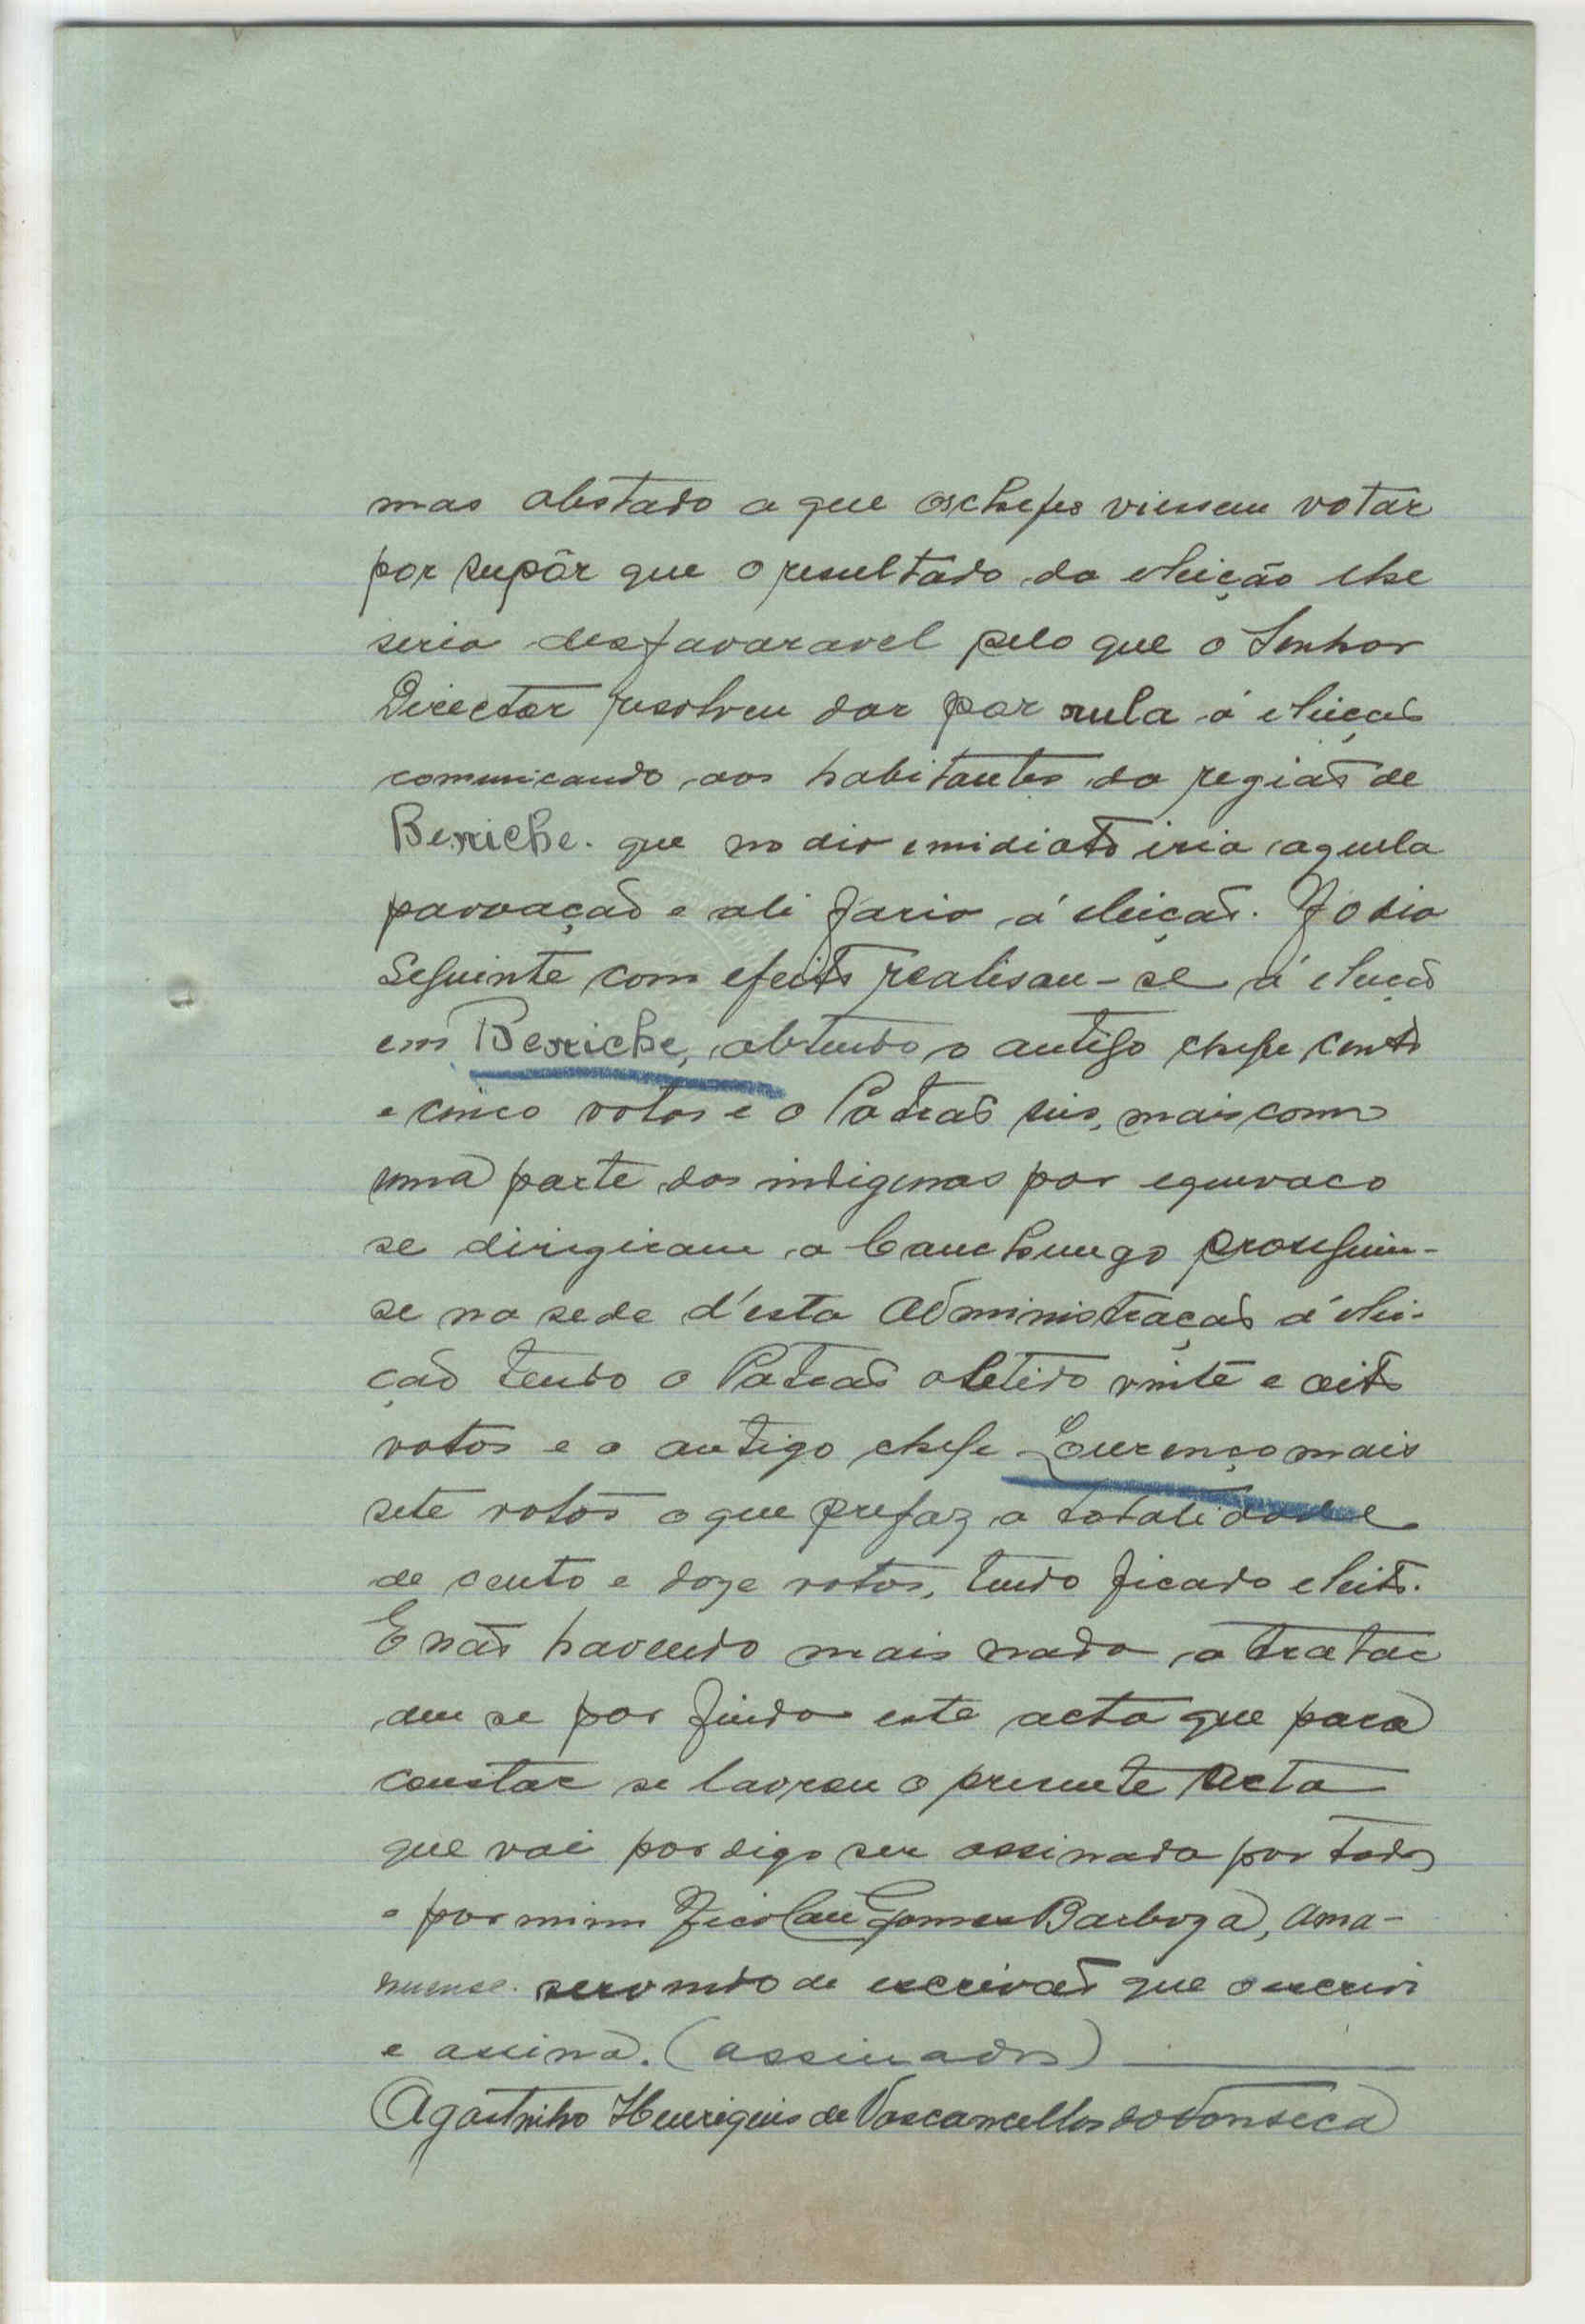 mas obstado a que os chefes viessem votar
por supôr que o resultado da eleição lhe
seria desfavoravel pelo que o Senhor
Director resolveu dar por nula á eleição
comunicando aos habitantes da região de
Beniche. que no dia imidiato iria aquela
povoação e ali faria á eleição. No dia
seguinte com efeito realisou-se á eleição
em Beniche, obtendo o antigo chefe cento
e cinco votos e o Patrão seis, mais como
uma parte dos indigenas por equivoco
se dirigiram a Canchungo proseguiu-
se na sede d'esta Administração á elei-
ção tendo o Patrão obtido vinte e oito
votos e o antigo chefe Lourenço mais
sete votos o que prefaz a totalidade
de cento e doze votos, tendo ficado eleito.
E não havendo mais nada a tratar
deu se por finda esta acta que para
constar se lavrou o presente Acta
que vai por digo ser assinada por todos
e por mim Nicolau Gomes Barboza, Ama-
nuense. servindo de escrivão que o escrivi
e assina. (assinados)
Agostinho Henriques de Vasconcellos da Fonseca